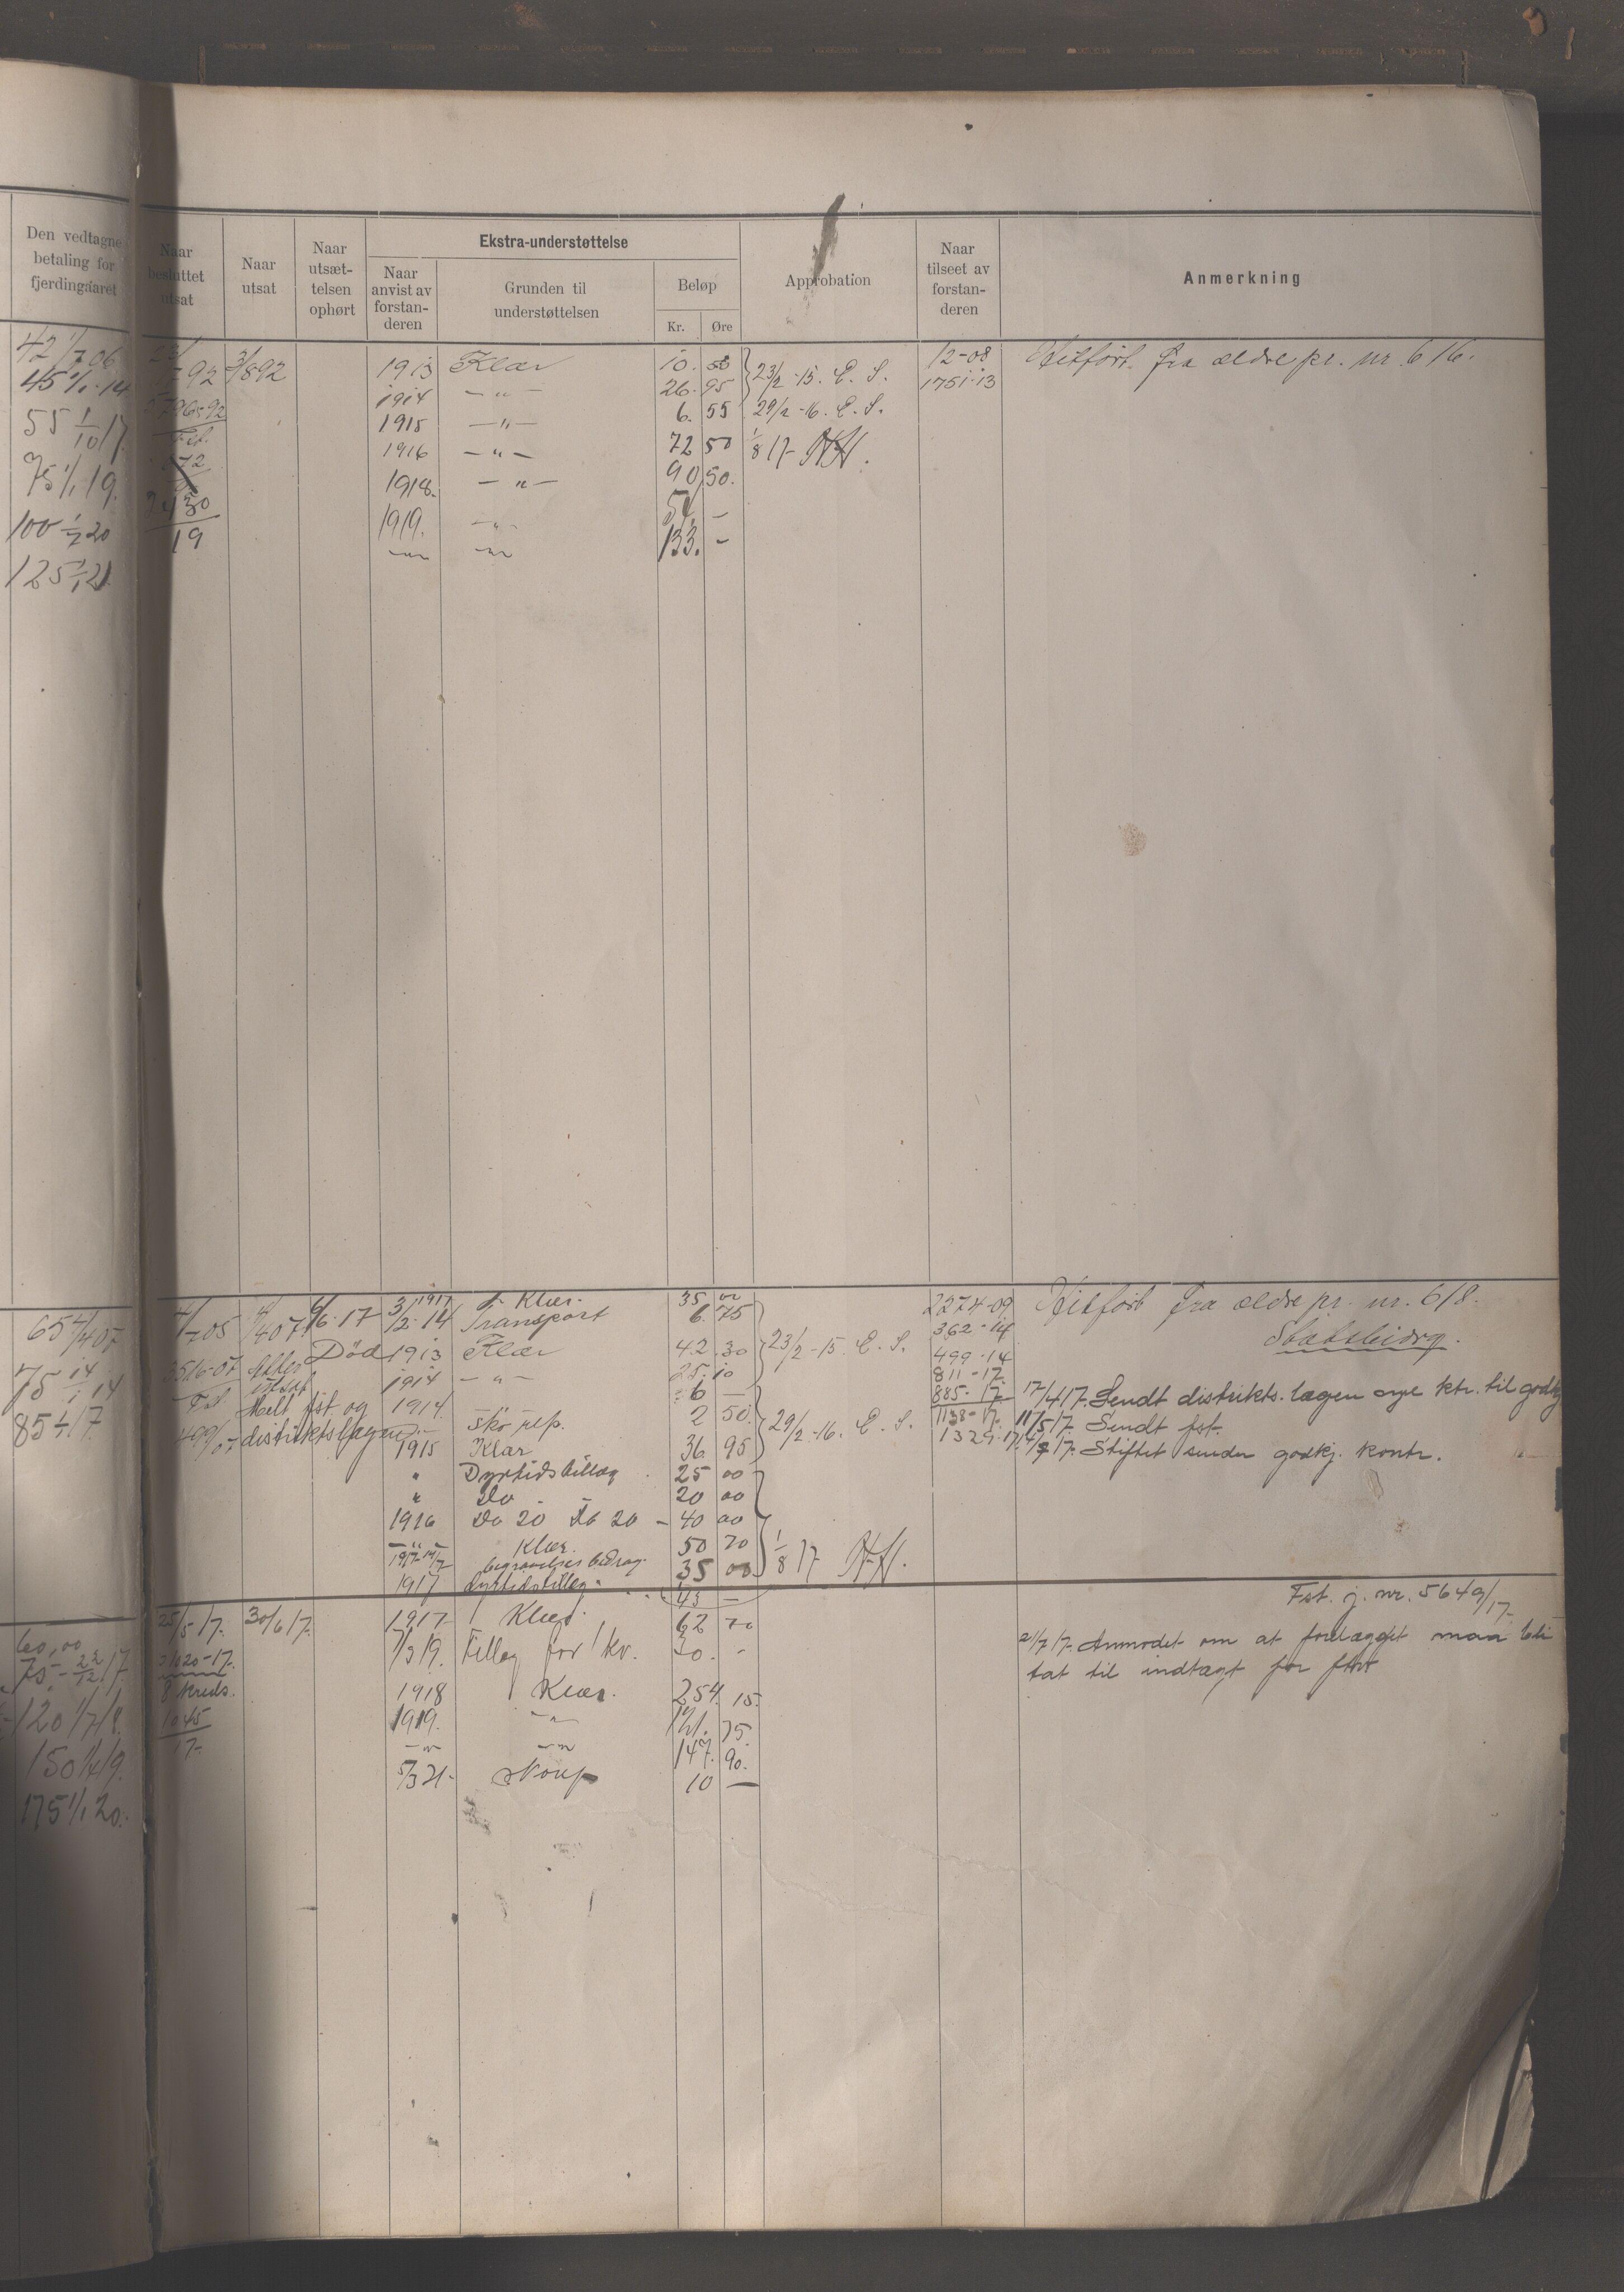 Den vedtagne
betaling for
fjerdingaaret
Naar
besluttet
utsat
Naar
utsat
Naar
utsæt-
telsen
ophørt
Ekstra-understøttelse
Naar
anvist av
forstan-
deren
Grunden til
understøttelsen
Beløp
Kr. Øre
Approbation
Naar
tilseet av
forstan-
deren
Anmerkning
42 1/7 06
45 1/1-14
55 1/10 17
75 1/1 19.
100 1/7 20
125 1/1 21.
92
3/8 92
2430
19
1913 Klær 10. 50
1914 — " — 26. 95
23/2-15. E. S.
1915 — " — 6. 55 29/2-16. E. S.
1916 — " — 72 50 1/8 17
1918. — " — 90 50.
1919. — " — 54 —
— " — — " — 133. —
12-08
1751-13
Hitført fra ældre pr. nr. 616.
65 1/4 07
75 1/1 14
85 1/4 17
4/7 05
1/4 07
6/6-17
Død
3516-07
Fst
499/07
Atter
utsat
Melt fst og
distriktslægen
1917 Klær. 35 00
3/2-14 Transport 6. 75
1913 Klær 42. 30
1914 — " — 25. 10
23/2-15. E. S.
1914 6 —
Sko rep. 2 50
1915 Klær 36. 95
29/2-16. E. S.
" Dyrtidstillæg 25 00
" Do 20 00
1916 Do 20 Do 20 — 40 00
— " — Klær. 50 70
1917 14/7 begravelses bidrag 35 00
1/8 17
1917 dyrtidstillæg 45 —
2274-09
362-14
499-14
811-17.
885-17
1138-17.
1329-17.
Hitført fra ældre pr. nr. 618.
Statsbidrag.
17/4 17. Sendt distrikts.lægen nye ktr. til godkj
11/5 17. Sendt fst.
17. Stiftet sender godkj. kontr.
60,00
75,- 22/12 17
120 1/7 18.
150 1/4 19.
175 1/1 20.
25/5 17.
30/6 17.
31020-17.
8 kreds.
1045
17.
1917 Klær. 62 70
1/3 19. Tillæg for 1 kv. 20. -
1918 Klær. 254. 15.
1919. — " — 121. 75.
— " — — " — 147. 90.
5/3 21. 10 —
Fst. j. nr. 5649/17.
21/7 17. Anmodet om at forlægget maa bli
tat til indtægt for fst